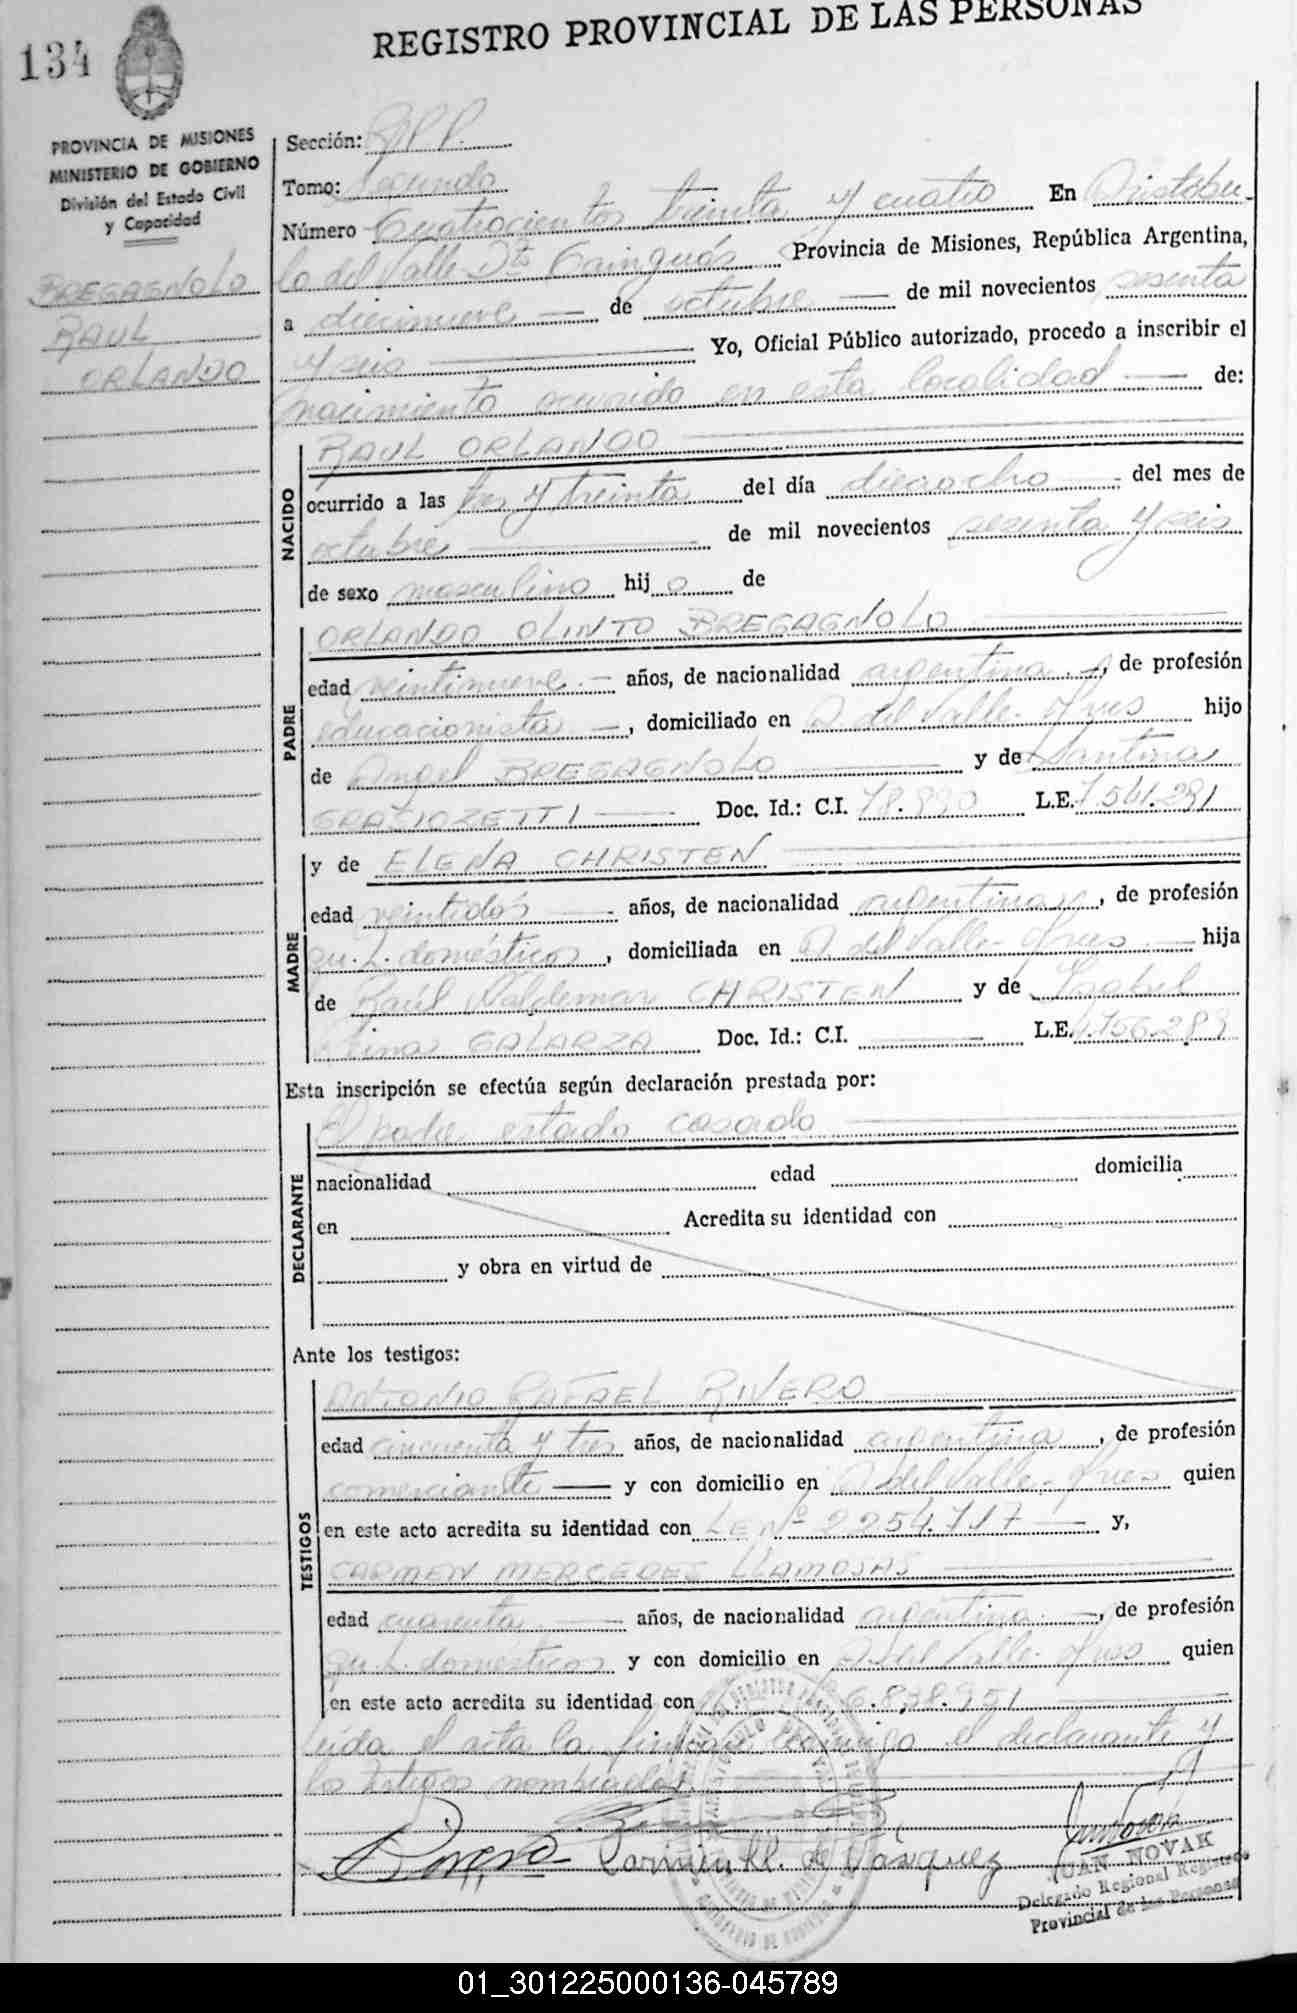 REGISTRO PROVINCIAL DE LAS PERSONAS
134
PROVINCIA DE MISIONES
MINISTERIO DE GOBIERNO
División del Estado Civil
y Capacidad
BREGAGNOLO
RAUL
ORLANDO
Sección: RPP.
Tomo: Segundo
Número Cuatrocientos treinta y cuatro En Aristóbu-
lo del Valle Dto Cainguás Provincia de Misiones, República Argentina,
a diecinueve de octubre de mil novecientos sesenta
y seis Yo, Oficial Público autorizado, procedo a inscribir el
nacimiento ocurrido en esta localidad de:
NACIDO
RAUL ORLANDO
ocurrido a las tres y treinta del día dieciocho del mes de
octubre de mil novecientos sesenta y seis
de sexo masculino hijo de
PADRE
ORLANDO OLINTO BREGAGNOLO
edad veintinueve años, de nacionalidad argentina, de profesión
educacionista, domiciliado en A. del Valle - Mnes hijo
de Angel BREGAGNOLO y de Santina
GRACIOZETTI Doc. Id.: C.I. 78.990 L.E. 7.541.291
MADRE
y de ELENA CHRISTEN
edad veintidós años, de nacionalidad argentina, de profesión
qu. h. domésticos, domiciliada en A. del Valle - Mnes hija
de Raúl Valdemar CHRISTEN y de Isabel
GALARZA Doc. Id.: C.I. L.E. .756.289
Esta inscripción se efectúa según declaración prestada por:
DECLARANTE
El padre estado casado
nacionalidad edad domicilia
en Acredita su identidad con
y obra en virtud de
Ante los testigos:
TESTIGOS
ANTONIO RAFAEL RIVERO
edad cincuenta y tres años, de nacionalidad argentina, de profesión
comerciante y con domicilio en A. del Valle - Mnes quien
en este acto acredita su identidad con LE Nº 2254.717 y,
CARMEN MERCEDES LLAMOSAS
edad cuarenta años, de nacionalidad argentina, de profesión
qu. h. domésticos y con domicilio en A. del Valle - Mnes quien
en este acto acredita su identidad con 6.838.951
Leída el acta la firman conmigo el declarante y
los testigos nombrados.
Rivero Carmen Ll. de Vásquez
JUAN NOVAK
Delegado Regional Registro
Provincial de las Personas
01_301225000136-045789